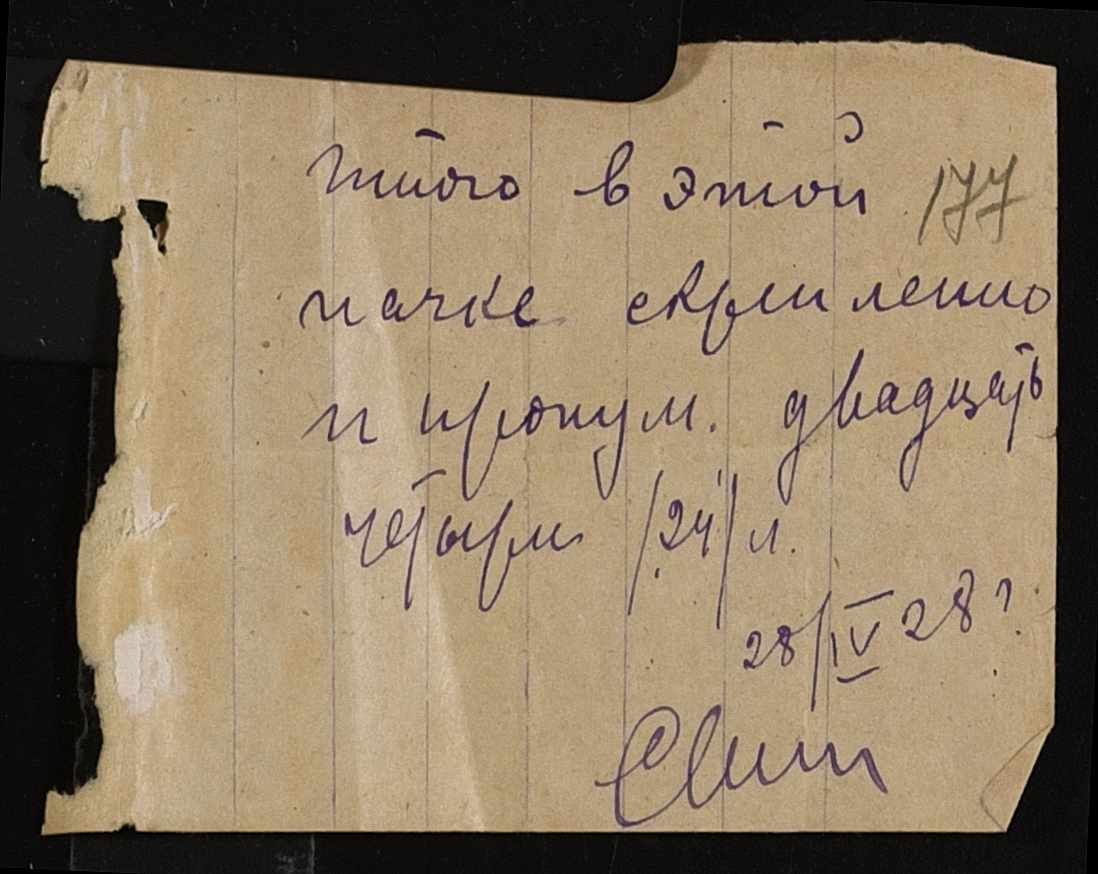 Итого в этой 177
пачке скреплено
и пронум. двадцать
четыре /24/ л.
28/IV 28 г.